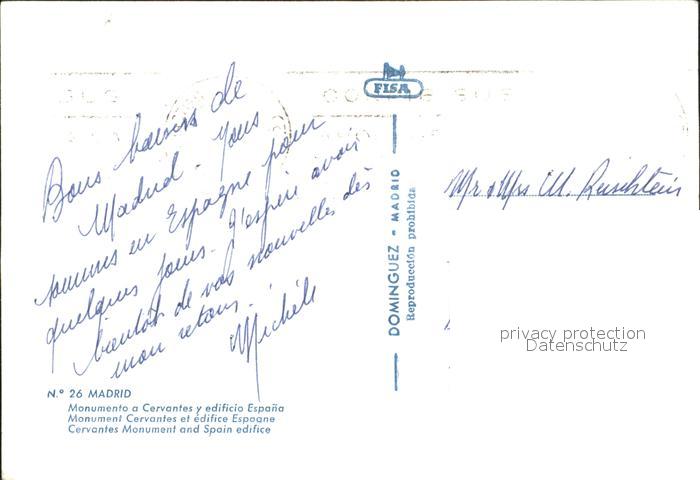 Bons baisers de
Madrid. Nous
sommes en Espagne pour
quelques jours. J'espère avoir
bientôt de vos nouvelles dès
mon retour.
Michèle
N.º 26 MADRID
Monumento a Cervantes y edificio España
Monument Cervantes et édifice Espagne
Cervantes Monument and Spain edifice
FISA
DOMINGUEZ - MADRID
Reproducción prohibida
Mr & Mrs M.
privacy protection
Datenschutz